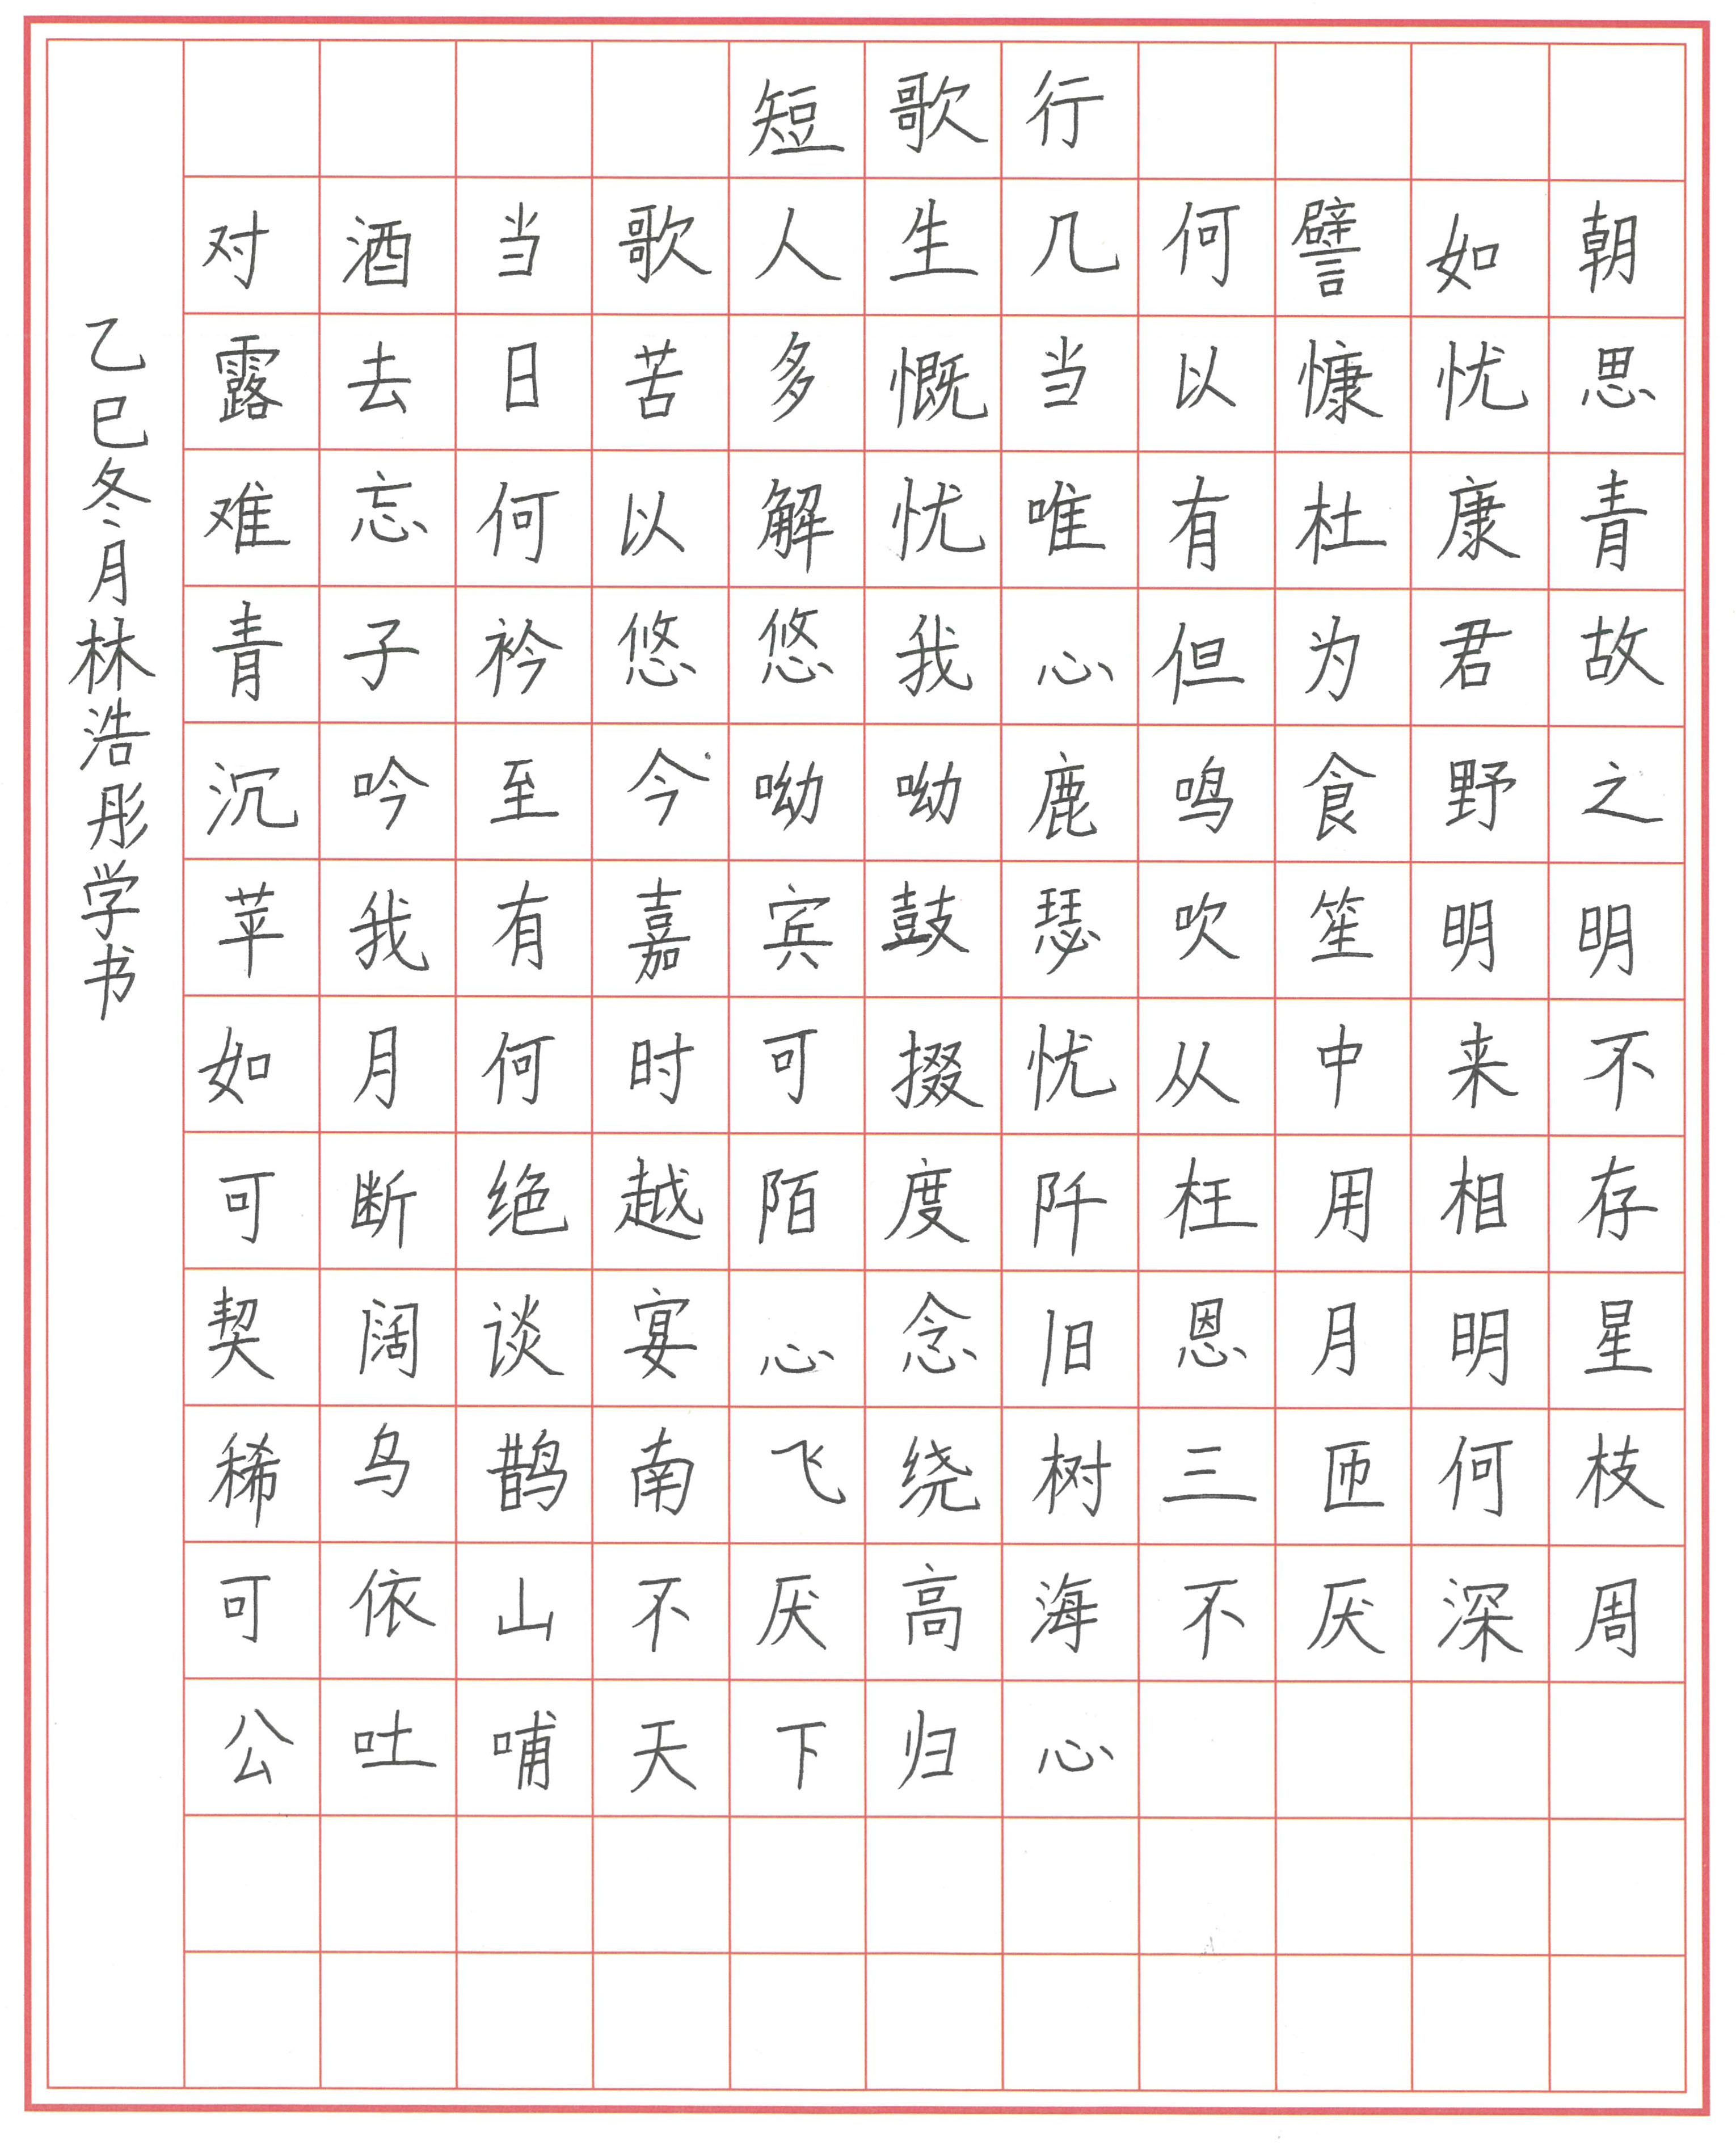 短歌行
对酒当歌人生几何譬如朝
露去日苦多慨当以慷忧思
难忘何以解忧唯有杜康青
青子衿悠悠我心但为君故
沉吟至今呦呦鹿鸣食野之
苹我有嘉宾鼓瑟吹笙明明
如月何时可掇忧从中来不
可断绝越陌度阡枉用相存
契阔谈宴心念旧恩月明星
稀乌鹊南飞绕树三匝何枝
可依山不厌高海不厌深周
公吐哺天下归心
乙巳冬月林浩彤学书